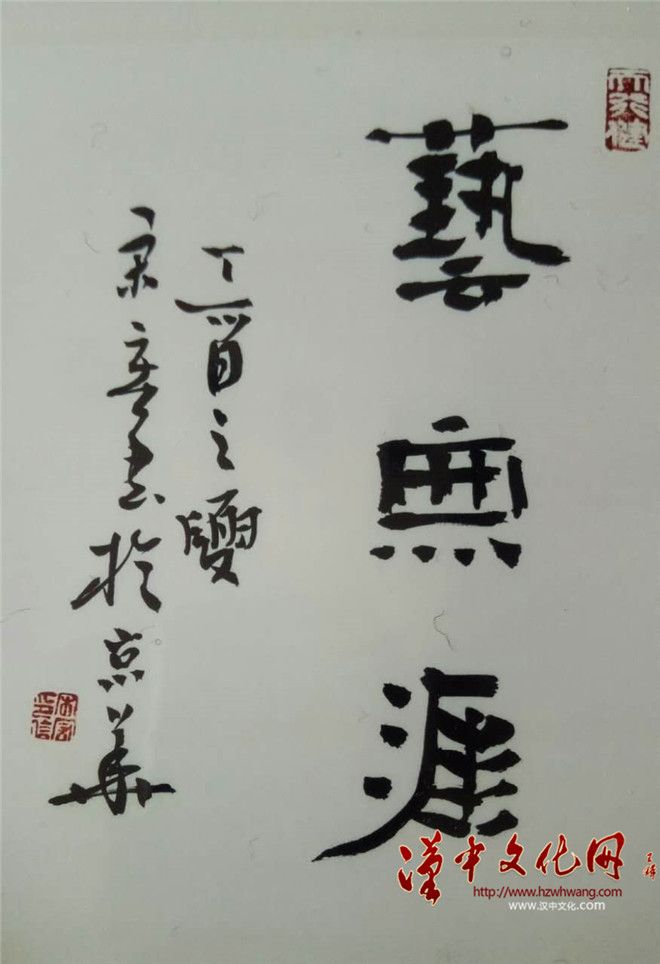 天行健
藝無涯
丁酉之夏
宋书於京華
漢中文化网
http://www.hzwhwang.com
www.汉中文化.com